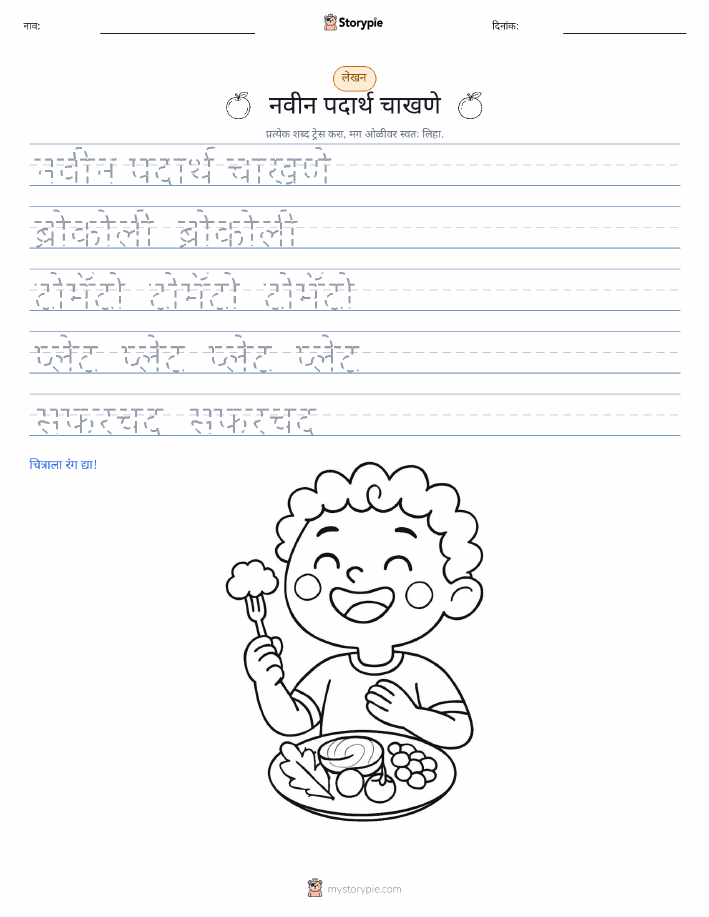 नाव:
Storypie
दिनांक:
लेखन
नवीन पदार्थ चाखणे
प्रत्येक शब्द ट्रेस करा, मग ओळीवर स्वतः लिहा.
नवीन पदार्थ चाखणे
ब्रोकोली ब्रोकोली
टोमॅटो टोमॅटो टोमॅटो
प्लेट प्लेट प्लेट प्लेट
सफरचंद सफरचंद
चित्राला रंग द्या!
mystorypie.com